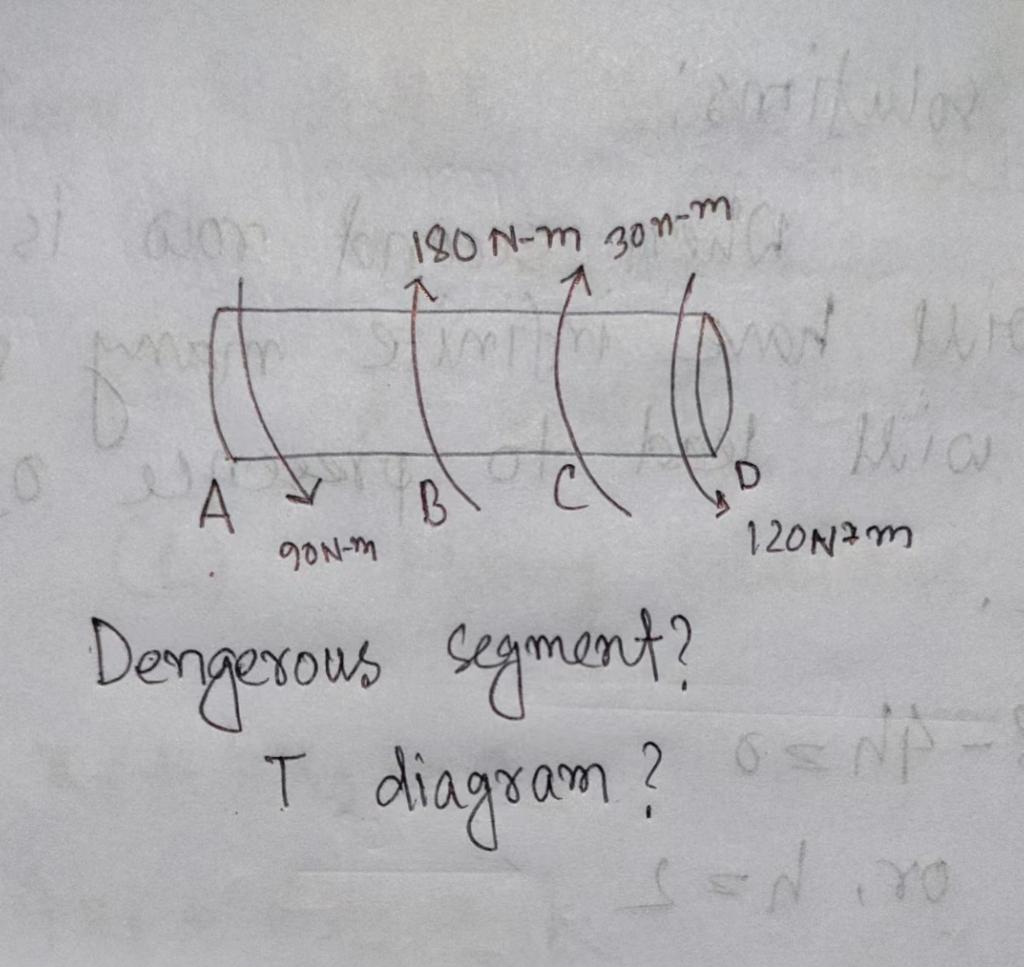 180 N-m 30 n-m
A B C D
90N-m
120N-m
Dengerous segment?
T diagram?